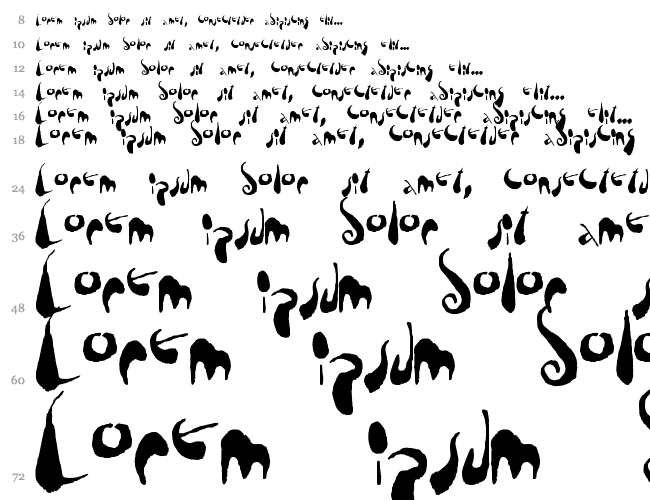 8 Lorem ipsum dolor sit amet, consectetuer adipiscing elit...
10 Lorem ipsum dolor sit amet, consectetuer adipiscing elit...
12 Lorem ipsum dolor sit amet, consectetuer adipiscing elit...
14 Lorem ipsum dolor sit amet, consectetuer adipiscing elit...
16 Lorem ipsum dolor sit amet, consectetuer adipiscing elit...
18 Lorem ipsum dolor sit amet, consectetuer adipiscing
24 Lorem ipsum dolor sit amet, consectet
36 Lorem ipsum dolor sit ame
48 Lorem ipsum dolor
60 Lorem ipsum dolo
72 Lorem ipsum